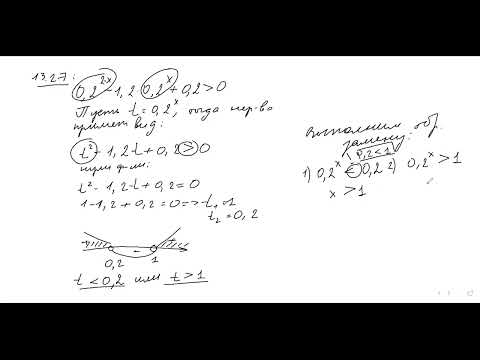 13.27:
0,2^2x - 1,2 · 0,2^x + 0,2 > 0
Пусть t = 0,2^x, тогда нер-во
примет вид:
t² - 1,2 · t + 0,2 > 0
нули ф-ии:
t² - 1,2 · t + 0,2 = 0
1 - 1,2 + 0,2 = 0 => t₁ = 1
t₂ = 0,2
-
0,2 1
t < 0,2 или t > 1
выполним обр.
замену:
0,2 < 1
1) 0,2^x < 0,2 2) 0,2^x > 1
x > 1